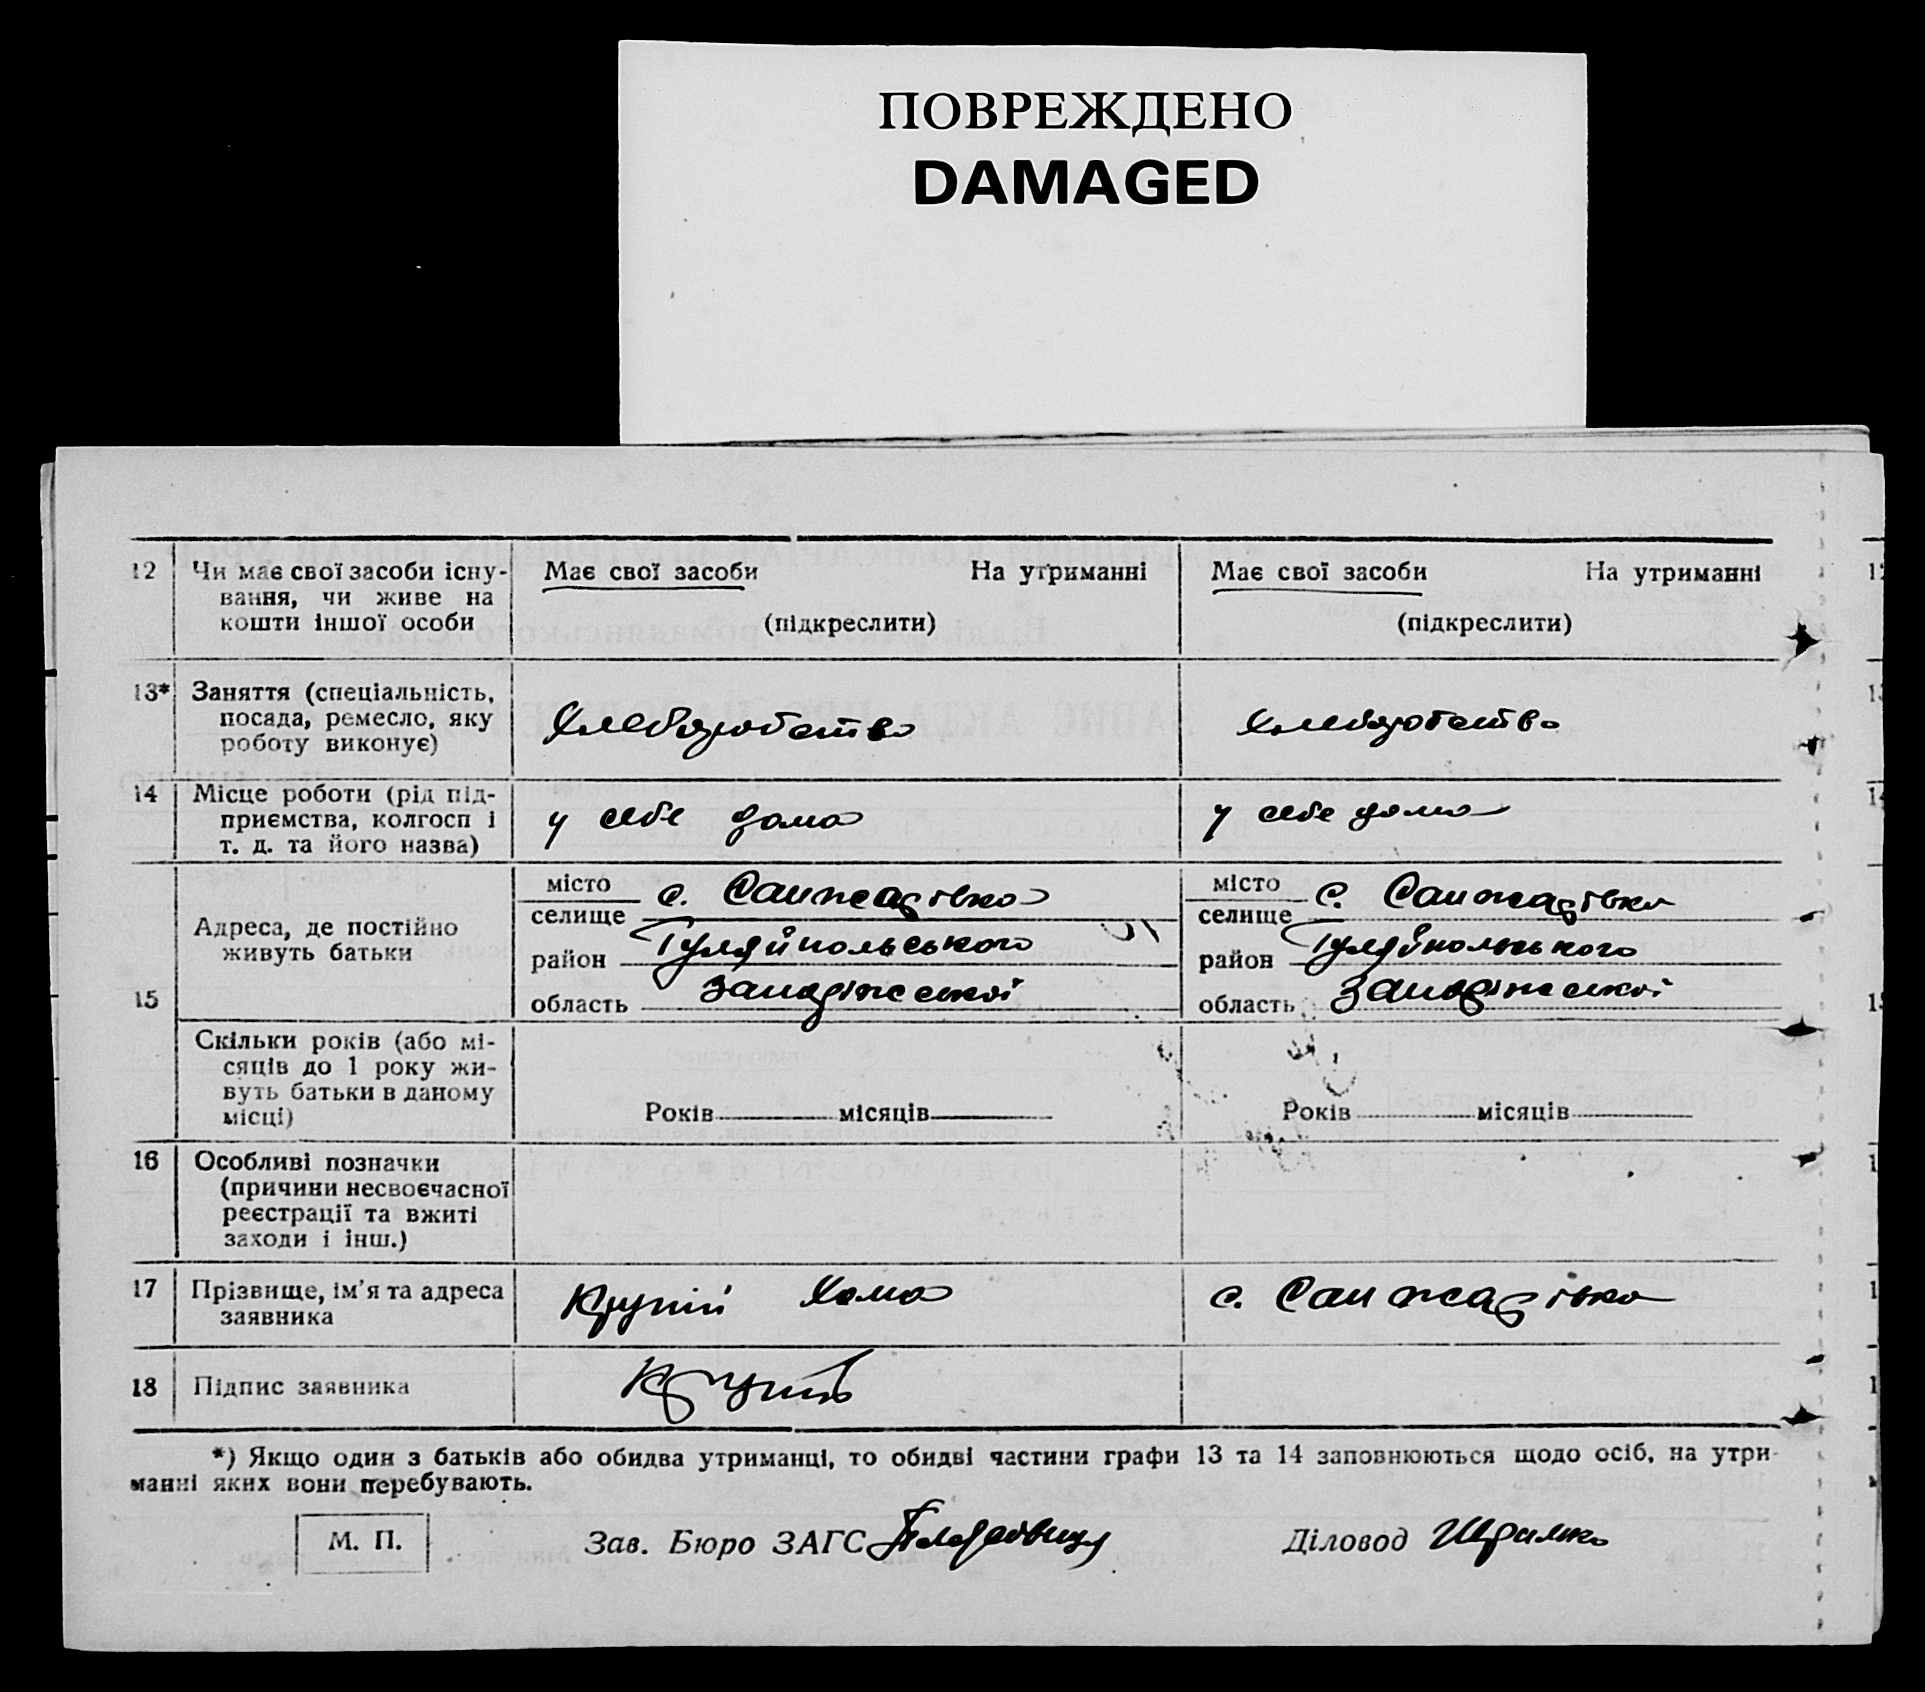 ПОВРЕЖДЕНО
DAMAGED
12 Чи має свої засоби існу-
вання, чи живе на
кошти іншої особи
Має свої засоби На утриманні
(підкреслити)
Має свої засоби На утриманні
(підкреслити)
13* Заняття (спеціальність,
посада, ремесло, яку
роботу виконує)
Хлеборобство
Хлеборобство
14 Місце роботи (рід під-
приємства, колгосп і
т. д. та його назва)
у себе дома
у себе дома
15 Адреса, де постійно
живуть батьки
місто с. Санжарівка
селище
район Гуляйпольського
область Запоріжської
місто с. Санжарівка
селище
район Гуляйпольського
область Запоріжської
Скільки років (або мі-
сяців до 1 року жи-
вуть батьки в даному
місці)
Років місяців
Років місяців
16 Особливі позначки
(причини несвоєчасної
реєстрації та вжиті
заходи і інш.)
17 Прізвище, ім'я та адреса
заявника
Крупій Хома
с. Санжарівка
18 Підпис заявника
Крупій
*) Якщо один з батьків або обидва утриманці, то обидві частини графи 13 та 14 заповнюються щодо осіб, на утри-
манні яких вони перебувають.
М. П.
Зав. Бюро ЗАГС
Діловод